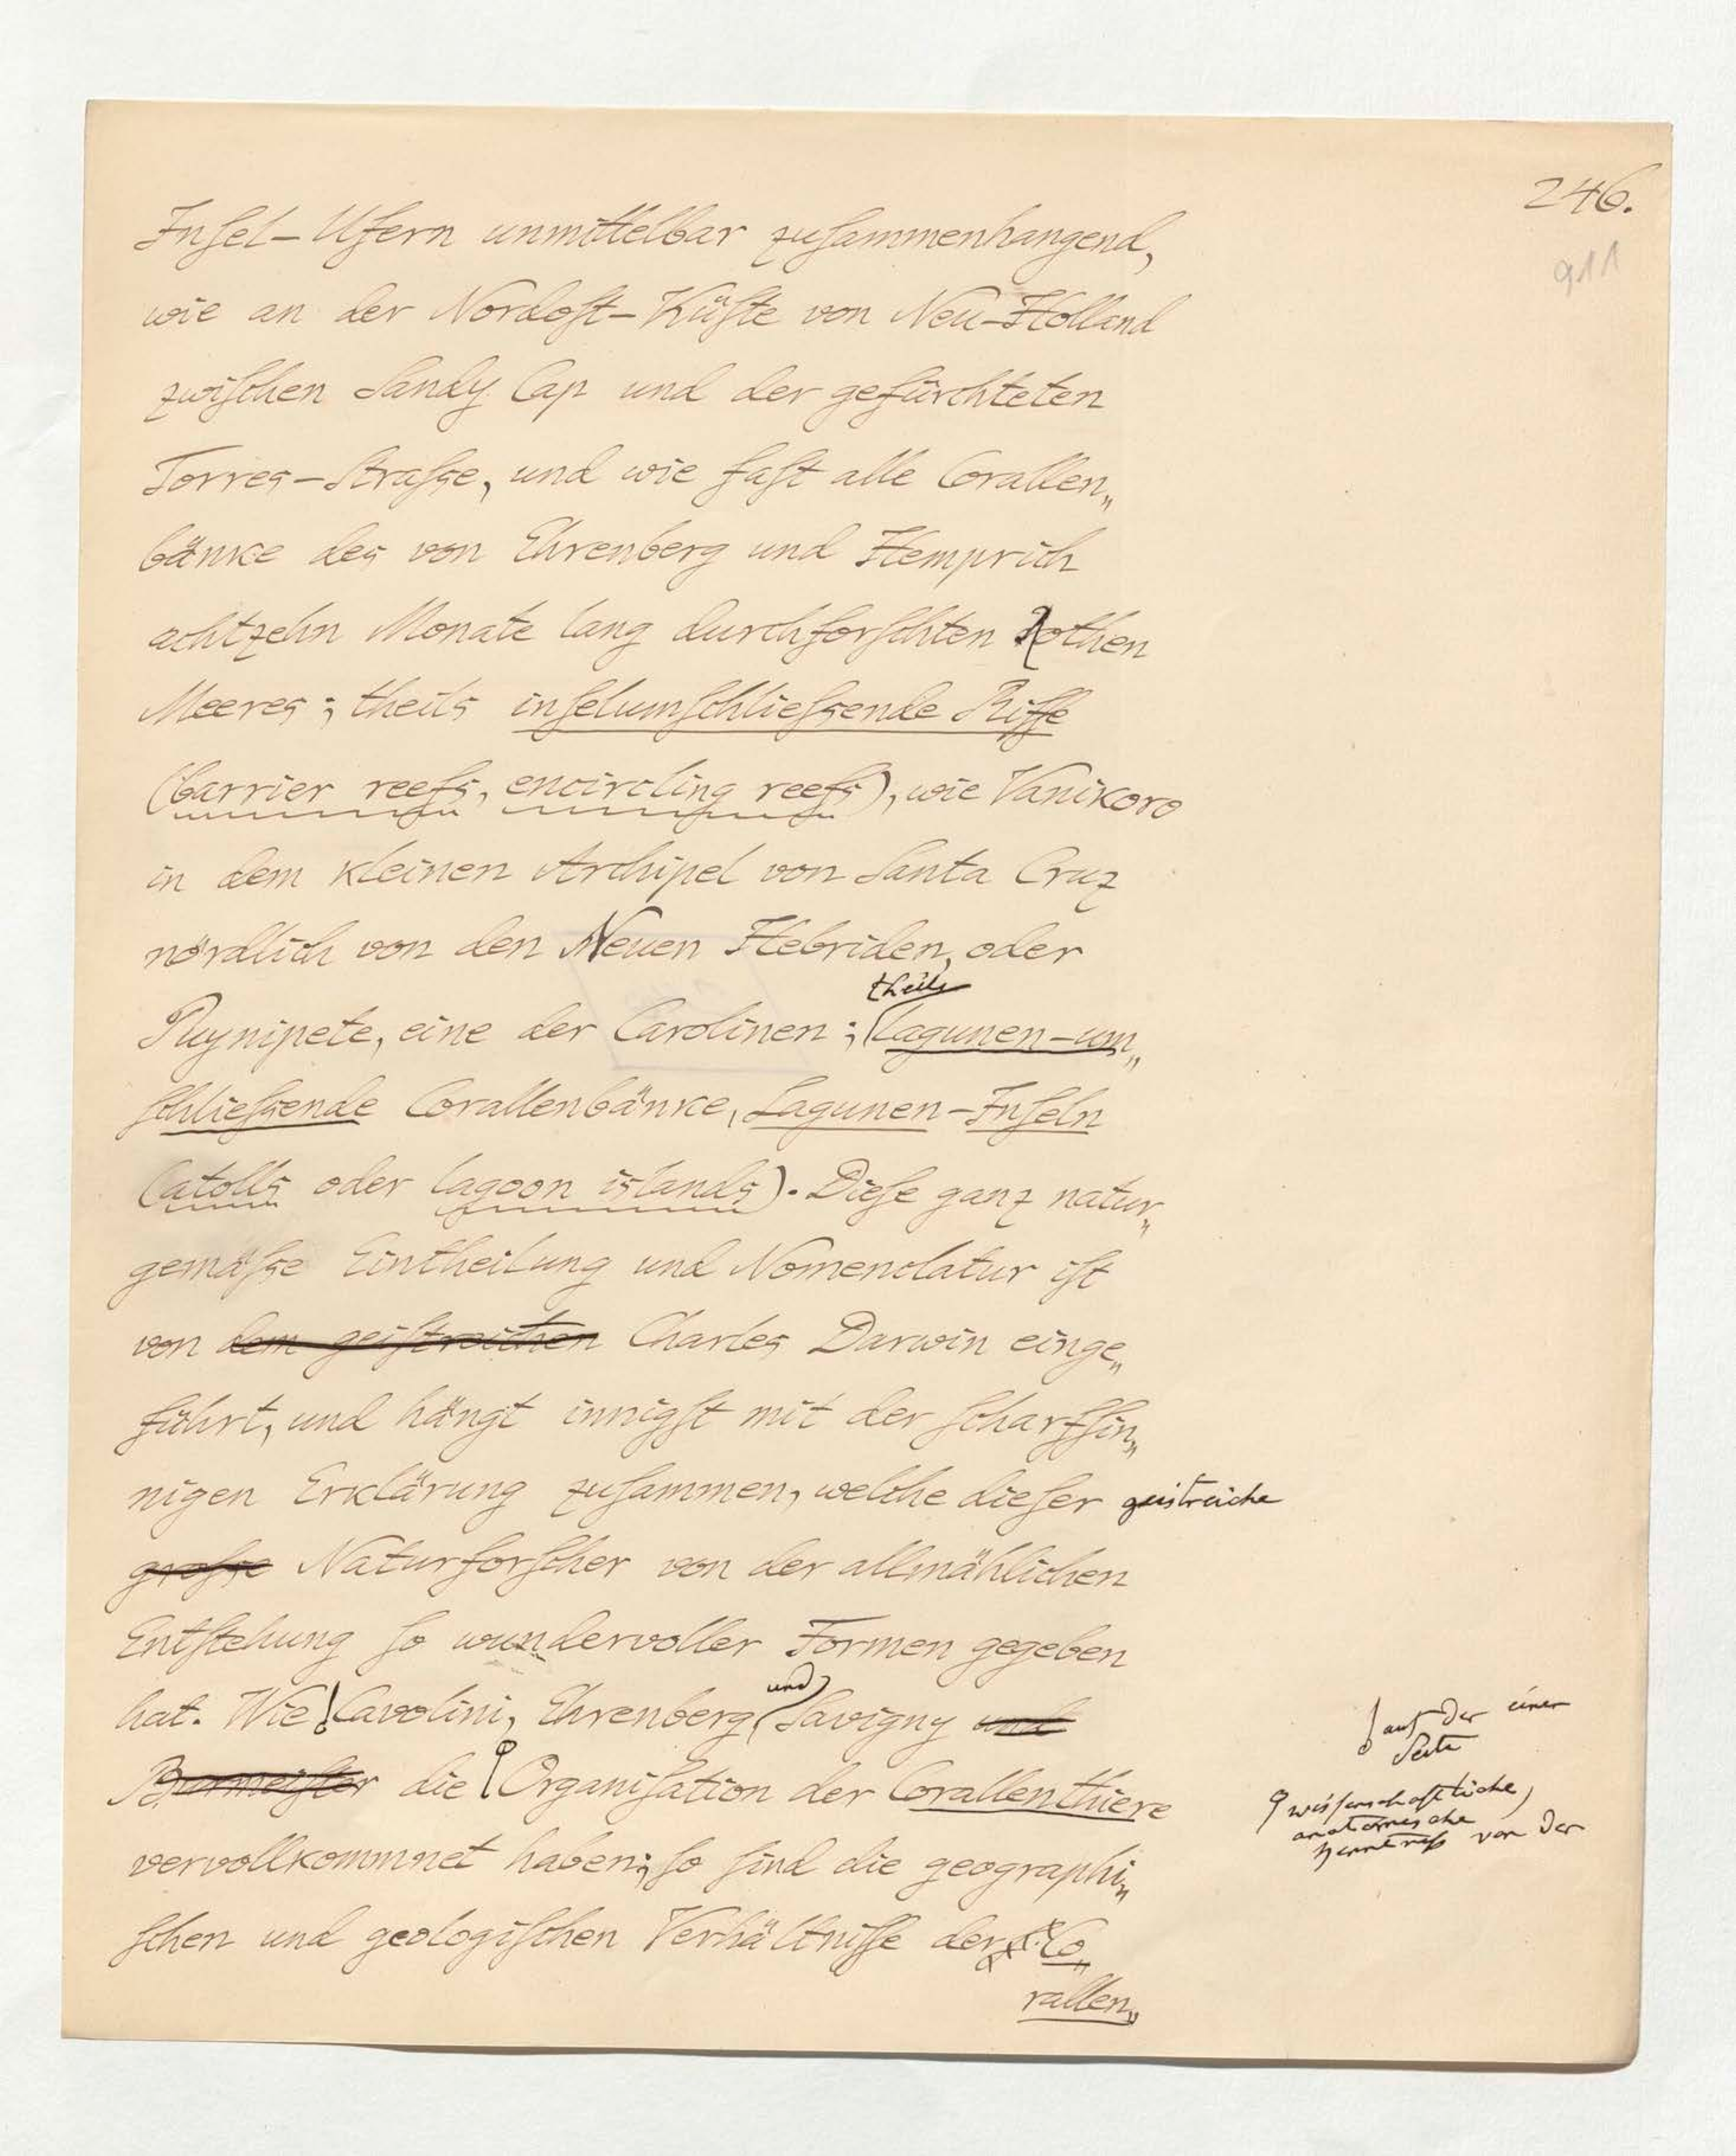 246.
911
Inſel-Ufern unmittelbar zuſammenhangend,
wie an der Nordoſt-Küſte von Neu-Holland
zwiſchen Sandy Cap und der gefürchteten
Torres-Straſse, und wie faſt alle Corallen„
bänke des von Ehrenberg und Hemprich
achtzehn Monate lang durchforſchten Rothen
Meeres; theils inſelumſchlieſsende Riffe
(barrier reefs, encircling reefs), wie Vanikoro
in dem kleinen Archipel von Santa Cruz
nördlich von den Neuen Hebriden, oder
theils
Puynipete, eine der Carolinen; Lagunen-um„
ſchlieſsende Corallenbänke, Lagunen-Inſeln
(atolls oder lagoon islands). Dieſe ganz natur„
gemäſse Eintheilung und Nomenclatur iſt
von dem geiſtreichen Charles Darwin einge„
führt, und hängt innigſt mit der ſcharfſin„
nigen Erklärung zuſammen, welche dieſer geistreiche
groſse Naturforſcher von der allmählichen
Entſtehung ſo wundervoller Formen gegeben
und
hat. Wie Cavolini, Ehrenberg Savigny und
Burmeiſter die Organiſation der Corallenthiere
vervollkommnet haben; ſo ſind die geographi„
ſchen und geologiſchen Verhältniſſe der Co„
rallen„
auf der einen
Seite
wiſsenschaftliche,
anatomische
Kenntniß von der